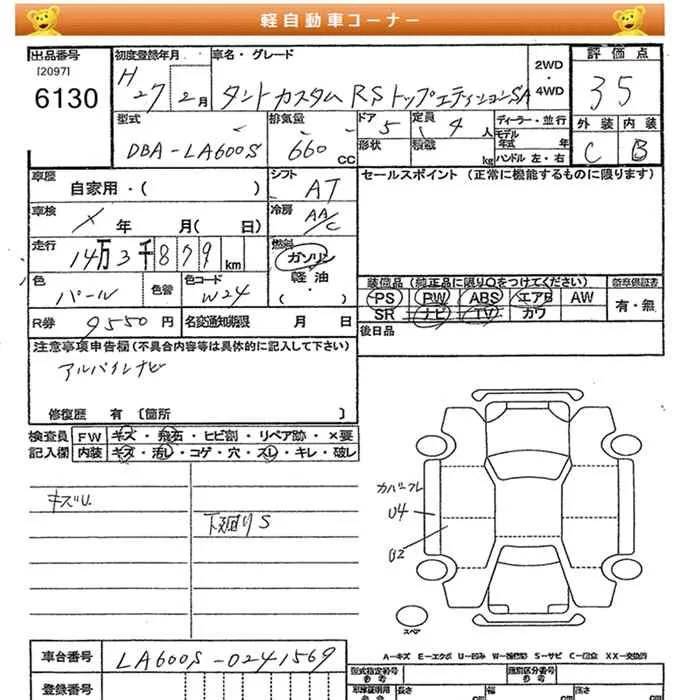 軽自動車コーナー
出品番号 初度登録年月 車名・グレード 2WD・4WD 評価点
[2097]
6130
H27 2月 タントカスタム RSトップエディションSA 35
型式 排気量 ドア 5 定員 4人 ディーラー・並行 外装 内装
DBA-LA600S 660cc 形状 積載 kg モデル年式 年 C B
ハンドル 左・右
車歴 自家用・( ) シフト AT セールスポイント (正常に機能するものに限ります)
車検 年 月( 日) 冷房 AA/C
走行 14万3千879km 燃料 ガソリン
軽油
・( )
色 パール 色替 色コード W24 装備品 (純正品に限り○をつけてください) 新車保証書
PS PW ABS エアB AW 有・無
SR ナビ TV カワ
R券 9550円 名変通知期限 月 日 後日品
注意事項申告欄 (不具合内容等は具体的に記入して下さい)
アルパインナビ
修復歴 有 〔箇所 〕
検査員 FW キズ・飛石・ヒビ割・リペア跡・×要
記入欄 内装 キズ・汚レ・コゲ・穴・スレ・キレ・破レ
キズU
下廻りS
カバーフレ
U4
B2
スペア
A-キズ E-エクボ U-凹み W-補修跡 S-サビ C-腐食 XX-交換済
車台番号 LA600S-0241569
型式指定番号 参考 類別区分番号 参考
登録番号 長さ 幅 高さ